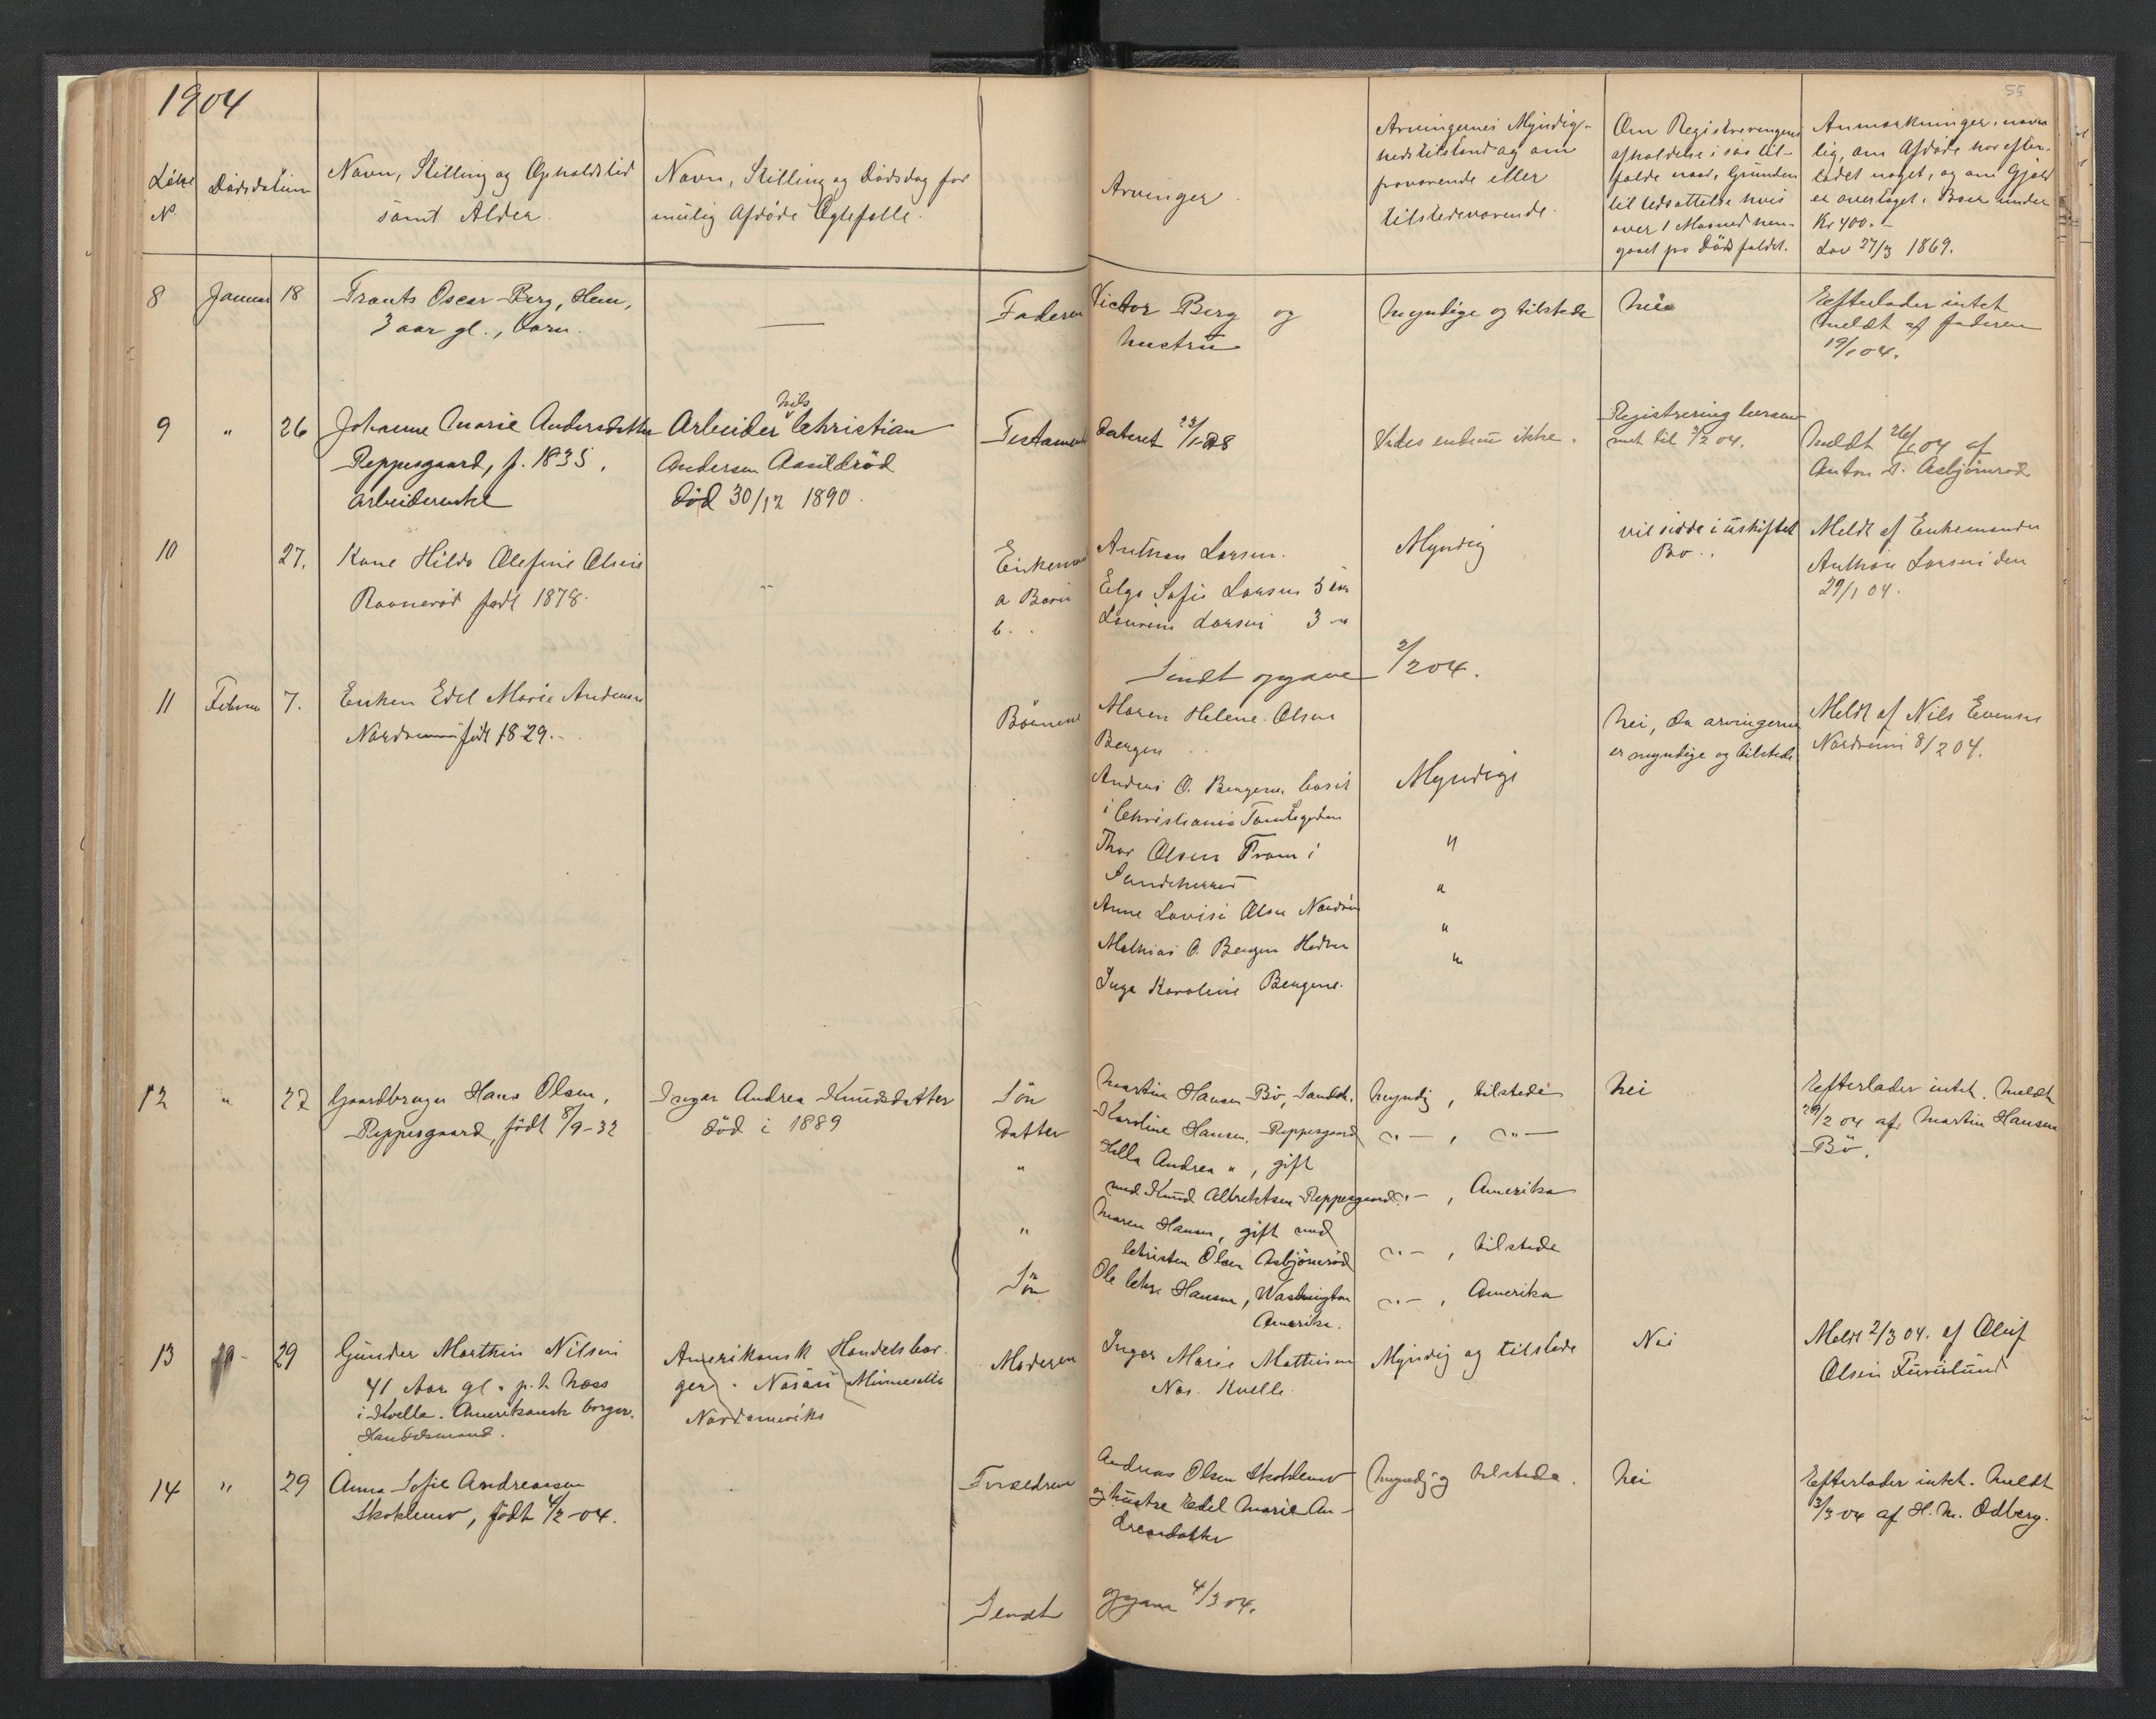 1904
55
Løbe
N.
Dødsdatum
Navn, Stilling og Opholdsted
samt Alder.
Navn, Stilling og Dødsdag for
mulig Afdøde Ægtefælle.
Arvinger.
Arvingernes Myndig-
hedstilstand og om
fraværende eller
tilstedeværende.
Om Registreringens
afholdelse i saa til-
fælde naar, Grunden
til Udsættelse hvis
over 1 Maaned hen-
gaaet fra Dødsfaldet.
Anmærkninger, navn
lig, om Afdøde har efter-
ladet noget, og om Gjæld
er overtaget. Boer under
Kr 400.-
Lov 27/3 1869.
8 Januar 18 Frants Oscar Berg, Hem,
3 aar gl., barn.
Faderen Victor Berg og
hustru
myndige og tilstede
nei
Efterlader intet
meldt af faderen
19/1 04.
9 " 26 Johanne Marie Andersdatter
Reppesgaard, f. 1835,
arbeiderenke
Arbeider Nils Christian
Andersen Aasildrød
død 30/12 1890.
Testament dateret
Vides endnu ikke.
Registrering
met til 3/2 04.
meldt 26/1 04 af
Anton A. Asbjørnrød
10 27. Kone Hilda Olefine Olsen
Ravnerød født 1878.
Enkemand Anthon Larsen.
a Barn Elga Sofie Larsen 5 aar
b. " Laurens Larsen 3 "
Myndig
vil sidde i uskiftet
Bo..
Meldt af Enkemanden
Anthon Larsen den
29/1 04.
Sendt opgave 2/2 04.
11 Februar 7. Enken Edel Marie Andersen
Nordrum født 1829.-
Børnene Maren Helene Olsen
Bergen
Anders O. Bergene bosat
i Christiania Tomtegaden
Thor Olsen Fram i
Sandeherred
Anne Lovise Olsen Nordrum
Mathias O. Bergen Hedrum
Inga Karoline Bergene.
Myndige
"
"
"
"
Nei, da arvingerne
er myndige og tilstede
Meldt af Nils Evensen
Nordrum 8/2 04.
12 " 27 Gaardbruger Hans Olsen,
Reppesgaard, født 8/9-32
Inger Andrea Knudsdatter
død i 1889
Søn Martin Hansen Bø, Sandeh.
myndig, tilstede
Datter Karoline Hansen, Reppesgaard
-"- , -"-
" Hella Andrea ", gift
med Knud Albretktsen Reppesgaard
-"- , Amerika
" Maren Hansen, gift med
Christen Olsen Asbjørnrød
-"- , tilstede
Søn Ole Chr. Hansen, Washington
Amerika.
-"- , Amerika
nei
Efterlader intet. Meldt
29/2 04 af Martin Hansen
Bø.
13 29 Gunder Marthin Nilsen
41 Aar gl. p. t. Næss
i Kvelle. Amerikansk borger.
Handelsmand.
Amerikansk Handelsbor-
ger. Nasau Minnesotta
Nordamerika
Moderen Inger Marie Mathisen
Næs. Kvelle.
Myndig og tilstede
Nei
Meldt 2/3 04. af Oluf
Olsen Furulund
14 " 29 Anna Sofie Andreassen
Skoklemo, født 4/2-04.
Forældrene Andreas Olsen Skoklemo
og hustru Edel Marie An-
dreasdatter
myndig tilstede.
nei
Efterlader intet. Meldt
3/3 04 af H. M. Odberg.
Sendt opgave 4/3 04.